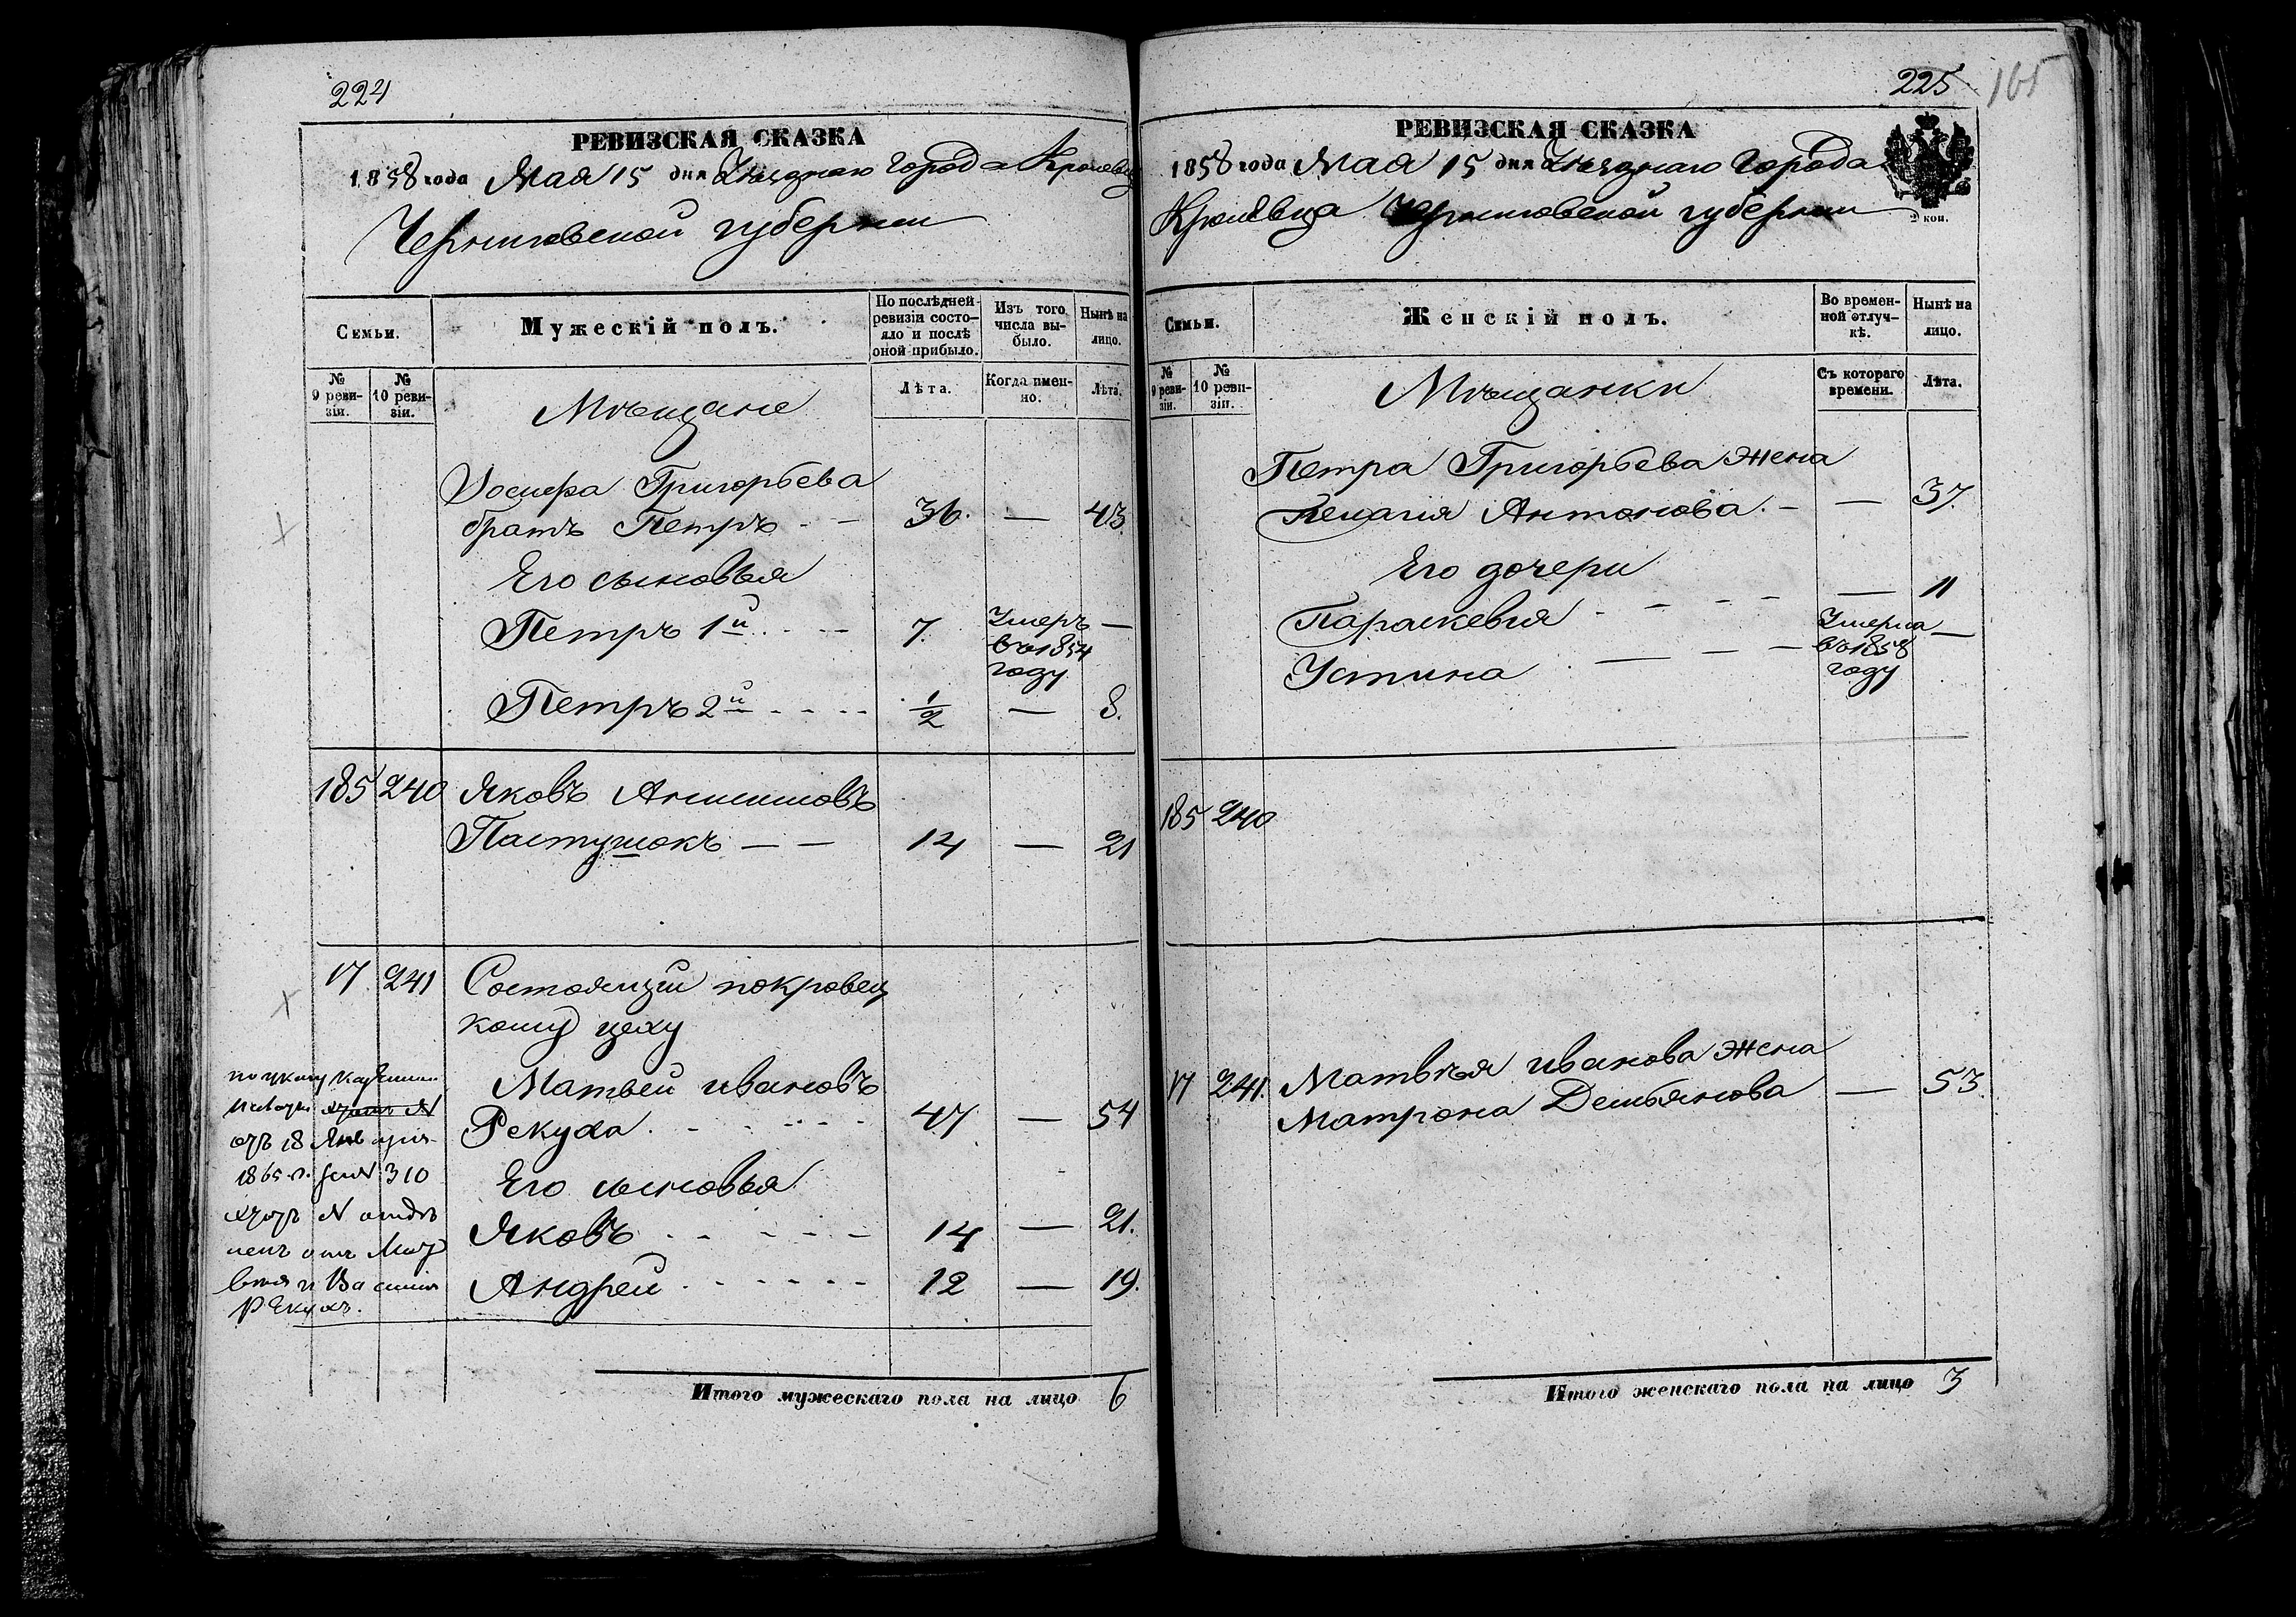 224
РЕВИЗСКАЯ СКАЗКА
1858 года Мая 15 дня Уѣзднаго Города Кролевца
Черниговской губерніи
Семьи.
Мужескій полъ.
По послѣдней ревизіи состояло и послѣ оной прибыло.
Изъ того числа выбыло.
Нынѣ на лицо.
№ 9 ревизіи.
№ 10 ревизіи.
Лѣта.
Когда именно.
Лѣта.
Мѣщане
Іосифа Григорьева
братъ Петръ 36. — 43.
Его сыновья
Петръ 1й 7. Умеръ въ 1854 году —
Петръ 2й ½ — 8.
185 240 Яковъ Анисимовъ
Пастушокъ — — 14 — 21
17. 241 Состоящій покровец
кому цеху
Матвей ивановъ
Рекуха 47 — 54
Его сыновья
Яковъ 14 — 21.
Андрей 12 — 19.
по указу Казенной
Палаты
отъ 18 Января
1865 г. за № 310
Рекухъ.
Итого мужескаго пола на лицо 6
225
165
РЕВИЗСКАЯ СКАЗКА
1858 года Мая 15 дня Уѣзднаго Города
Кролевца Черниговской губерніи
2 коп.
Семьи.
Женскій полъ.
Во временной отлучкѣ.
Нынѣ на лицо.
№ 9 ревизіи.
№ 10 ревизіи.
Съ котораго времени.
Лѣта.
Мѣщанки
Петра Григорьева жена
Пелагія Антонова. — — 37.
Его дочери
Параскевия — 11
Устина Умерла въ 1858 году —
185 240
17 241. Матвѣя иванова жена
Матрона Демьянова — 53.
Итого женскаго пола на лицо 3